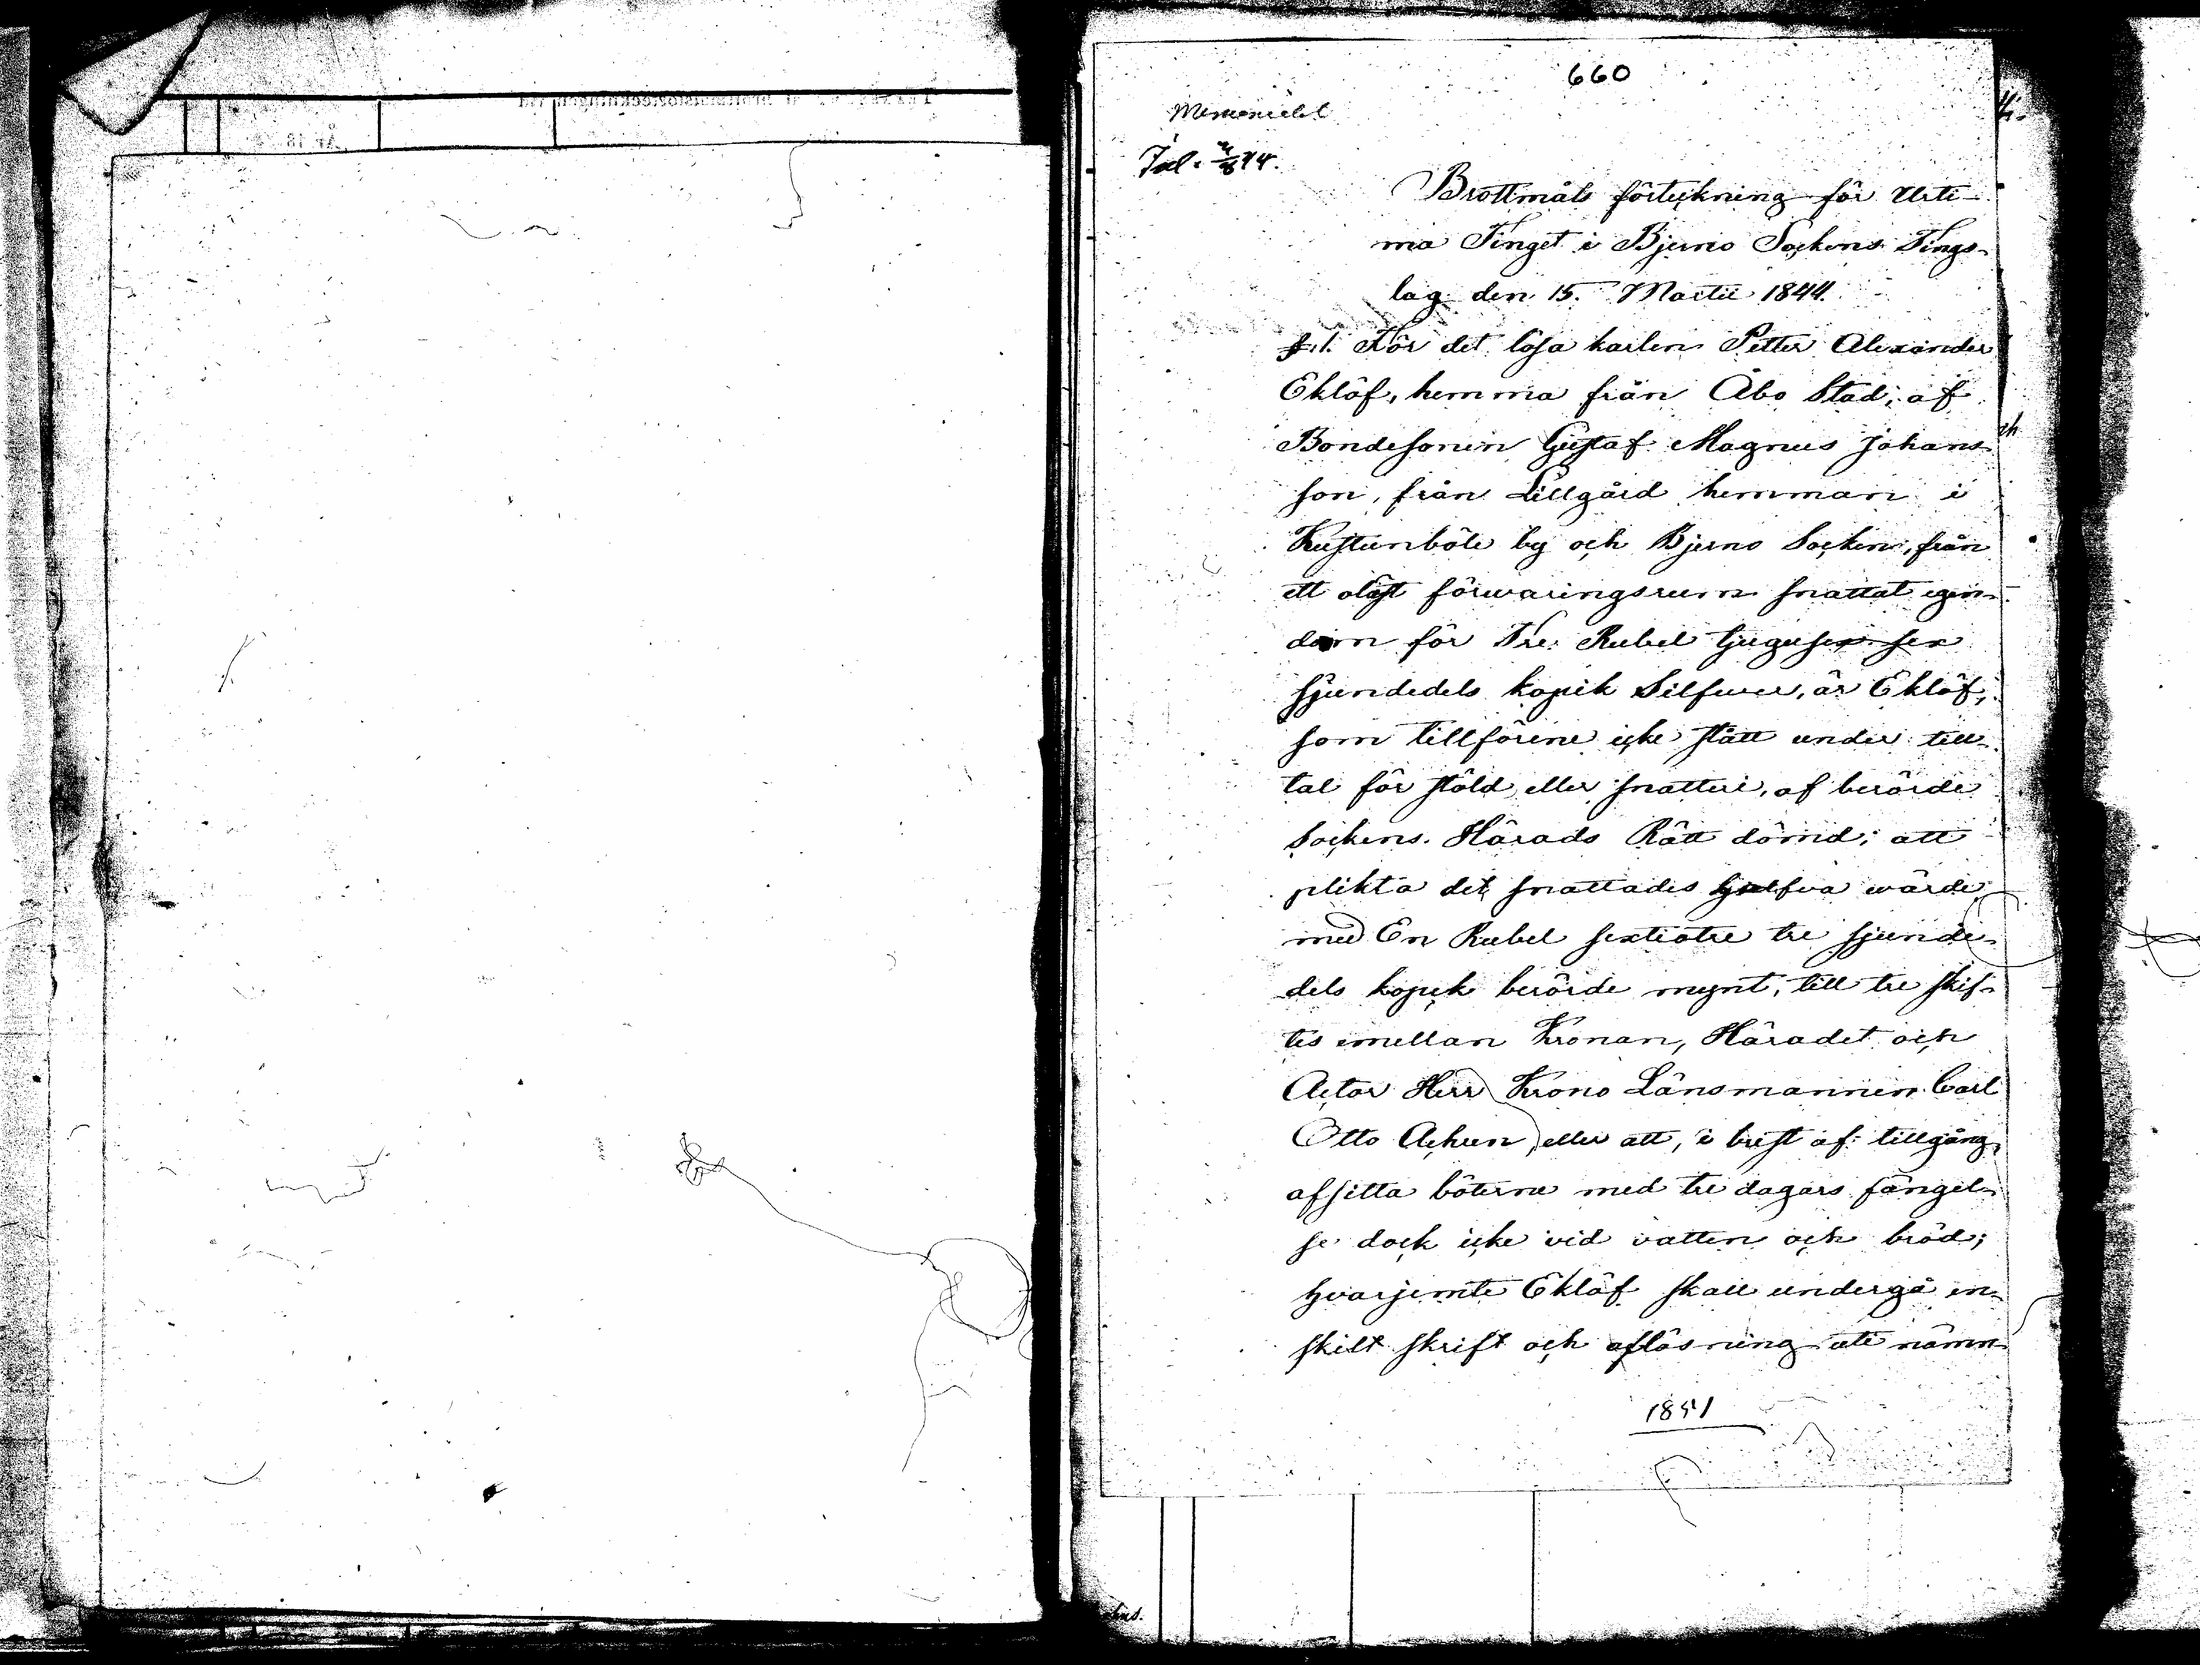 660
Memorialet
Jul. 2/8 44.
Brottmåls förteckning för Urti-
ma Tinget i Bjerno Sockens Tings-
lag den 15. Martii 1844.
§.1. För det lösa karlen Petter Alexander
Eklöf, hemma från Åbo Stad, af
Bondesonen Gustaf Magnus Johans-
son, från Lillgård hemman i
Kustunböle by och Bjerno Socken, från
ett olåst förwaringsrum snattat egen-
dom för Tre Rubel tjugusex sex
sjundedels kopek Silfwer, är Eklöf,
som tillförene icke stått under till-
tal för stöld eller snatteri, af berörde
Sockens Härads Rätt dömd; att
plikta det snattades halfva wärde
med En Rubel sextiotre tre sjunde-
dels kopek berörde mynt, till tre skif-
tes emellan Kronan, Häradet och
Actor Herr Krono Länsmannen Carl
Otto Achren, eller att, i brist af tillgång,
afsitta böterne med tre dagars fängel-
se dock icke vid vatten och bröd;
hvarjemte Eklöf skall undergå en-
skilt skrift och aflösning uti nämn-
1851